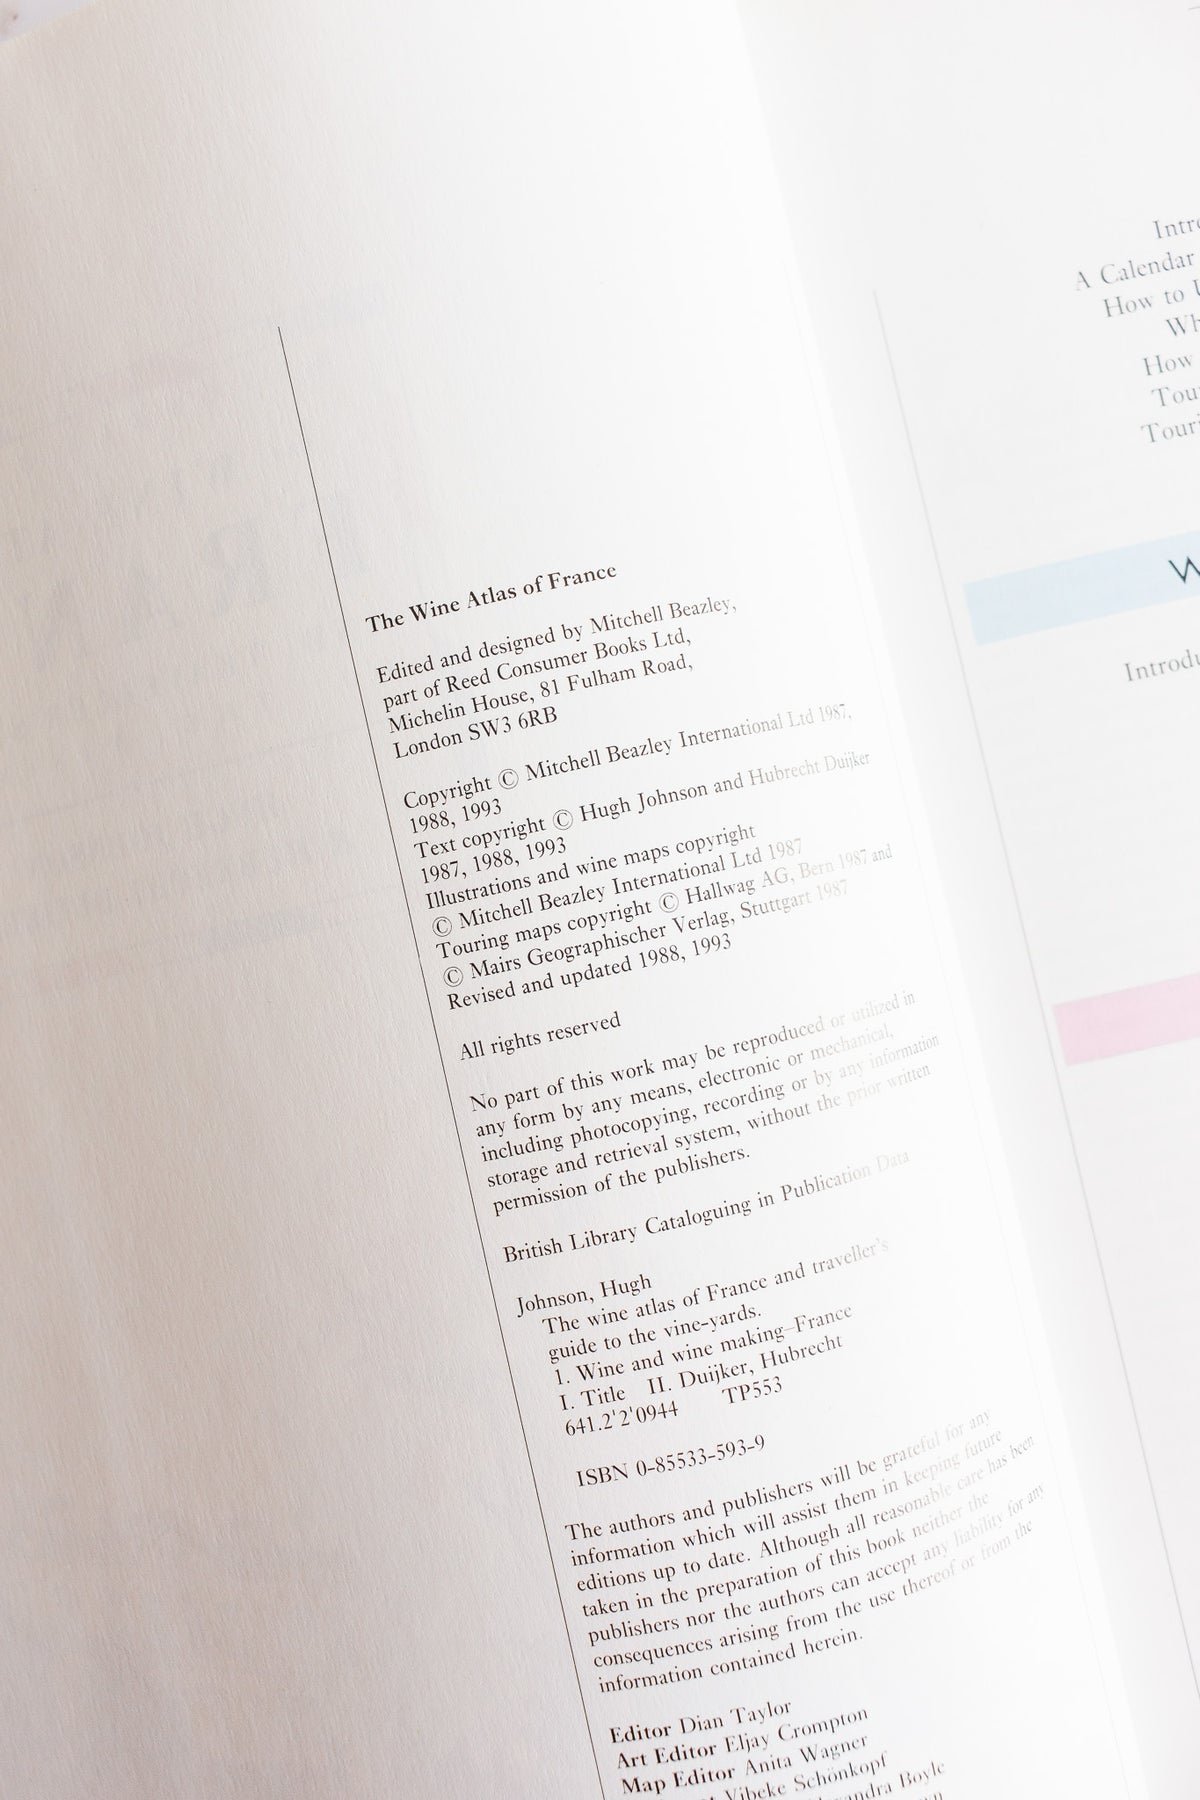 The Wine Atlas of France
Edited and designed by Mitchell Beazley,
part of Reed Consumer Books Ltd,
Michelin House, 81 Fulham Road,
London SW3 6RB
Copyright © Mitchell Beazley International Ltd 1987,
1988, 1993
Text copyright © Hugh Johnson and Hubrecht Duijker
1987, 1988, 1993
Illustrations and wine maps copyright
© Mitchell Beazley International Ltd 1987
Touring maps copyright © Hallwag AG, Bern 1987 and
© Mairs Geographischer Verlag, Stuttgart 1987
Revised and updated 1988, 1993
All rights reserved
No part of this work may be reproduced or utilized in
any form by any means, electronic or mechanical,
including photocopying, recording or by any information
storage and retrieval system, without the prior written
permission of the publishers.
British Library Cataloguing in Publication Data
Johnson, Hugh
The wine atlas of France and traveller's
guide to the vine-yards.
1. Wine and wine making–France
I. Title II. Duijker, Hubrecht
641.2'2'0944 TP553
ISBN 0-85533-593-9
The authors and publishers will be grateful for any
information which will assist them in keeping future
editions up to date. Although all reasonable care has been
taken in the preparation of this book neither the
publishers nor the authors can accept any liability for any
consequences arising from the use thereof or from the
information contained herein.
Editor Dian Taylor
Art Editor Eljay Crompton
Map Editor Anita Wagner
Vibeke Schönkopf
Boyle
Intro
A Calendar
How to
Wh
How
Tou
Touri
W
Introdu